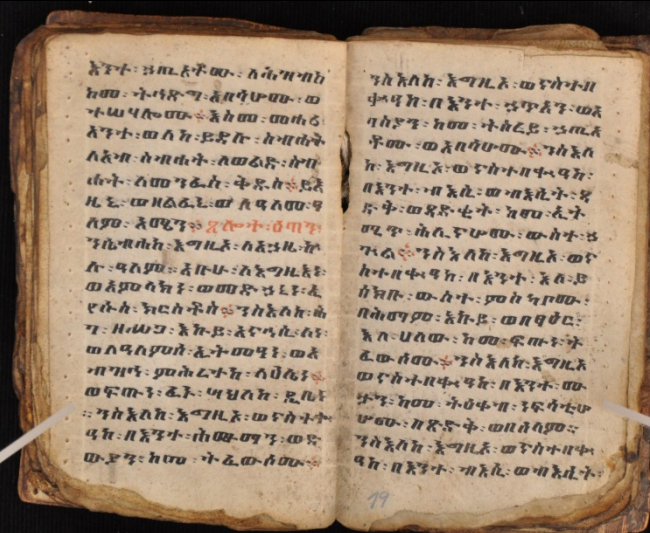 እንተ፡ ኃጢአቶሙ፡ ለሕዝብከ
ከመ፡ ትኅድግ፡ አበሳሆሙ፡ ወ
ተሠሃሎሙ፡ እስመ፡ መሐሪ
አንተ፡ ወለከ፡ ይደሉ፡ ስብሐት
ለአብ፡ ስብሐት፡ ለወልድ፡ ስብ
ሐት፡ ለመንፈስ፡ ቅዱስ፨ ይእ
ዜኒ፡ ወዘልፈኒ፡ ወለዓለመ፡ ዓ
ለም፡ አሜን፨ ጸሎት፡ ዕጣን፡
ንሴብሐከ፡ እግዚኦ፡ ለአኃዜ፡ ኵ
ሉ፡ ዓለም፡ አቡሁ፡ ለእግዚእነ፡
ወአምላክነ፡ ወመድኃኒነ፡ ኢ
የሱስ፡ ክርስቶስ፨ ንስእለከ፡
እኩይ፡
ወለዓለምሰ፡
ብዝኅ፡ ምሕረተከ፡ ላዕሌነ፨
ወፍጡነ፡ ፈኑ፡ ሣህለከ፡ ዲቤነ
ንስእለከ፡ እግዚኦ፡ ወናስተበ
ቍዓከ፡ በእንተ፡ ሕሙማን፡ ወድ
ውያን፡ ከመ፡ ትፈውሶሙ፨
ንስእለከ፡ እግዚኦ፡ ወናስተበ
ቍዓከ፡ በእንተ፡ ኃጥአን፡ ወአ
ባስያን፡ ከመ፡ ትስረይ፡ ኃጢአ
ቶሙ፡ ወአበሳሆሙ፨ ንስእለ
ከ፡ እግዚኦ፡ ወናስተበቍዓከ፡
በእንተ፡ ብእሲ፡ ወብእሲት፡ ጻ
ድቅ፡ ወጻድቅት፡ ከመ፡ ኢት
ሚጥ፡ ሕሊናሆሙ፡ ውስተ፡ ኃ
ጕል፨ ንስእለከ፡ እግዚኦ፡ ወና
ስተበቍዓከ፡ በእንተ፡ እለ፡ ይ
ሰክቡ፡ ውስተ፡ ምስካቦሙ፡
በሕማም፡ እኩይ፡
እለ፡ ሀለው፡ ከመ፡ ፍጡነ፡ ት
ፈውሶሙ፨ ንስእለከ፡ እግዚኦ
ወናስተበቍዓከ፡ በእንተ፡ ሙ
ታን፡ ከመ፡ ትዕቀብ፡ ነፍሳቲሆ
ሆሙ፡ በጽድቅ፡ ወበሰላም።
ንስእለከ፡ እግዚኦ፡ ወናስተበቍ
ዓከ፡ በእንተ፡ ብእሲ፡ ወብእሲት፡
19